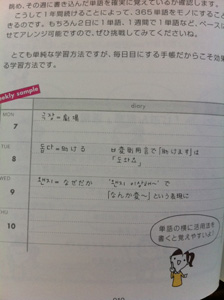 め、その週に書き込んだ単語を確実に覚えているか確認します。
こうして1年間続けることによって、365単語をモノにすること
きるのです。もちろん2日に1単語、1週間で1単語など、ペースに
せてアレンジ可能ですので、ぜひ挑戦してみてくださいね。
とても単純な学習方法ですが、毎日目にする手帳だからこそ効果
る学習方法です。
weekly sample
diary
MON
7
극장=劇場
TUE
8
돕다=助ける
変則用言で「助けます」は
「도와요」
WED
9
왠지=なぜだか
で
「なんか変〜」という表現に
THU
10
単語の横に活用法を
書くと覚えやすいよ!